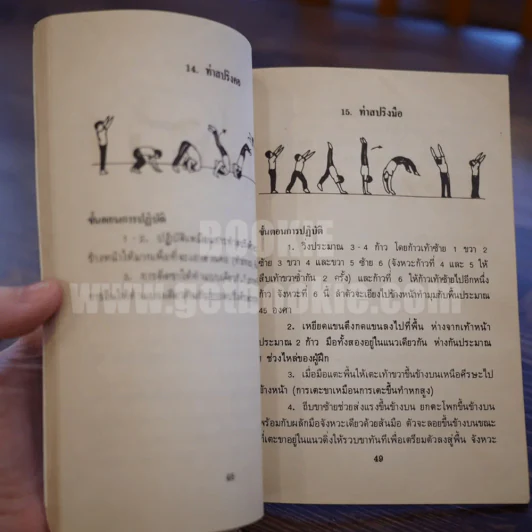 14. ท่าสปริงคอ
ขั้นตอนการปฏิบัติ
48
15. ท่าสปริงมือ
ขั้นตอนการปฏิบัติ
1. วิ่งประมาณ 3-4 ก้าว โดยก้าวเท้าซ้าย 1 ขวา 2
ซ้าย 3 ขวา 4 และขวา 5 ซ้าย 6 (จังหวะก้าวที่ 4 และ 5 ให้
สืบเท้าขวาซ้ำกัน 2 ครั้ง) และก้าวที่ 6 ให้ก้าวเท้าซ้ายไปอีกหนึ่ง
ก้าว จังหวะที่ 6 นี้ ลำตัวจะเอียงไปข้างหน้าทำมุมกับพื้นประมาณ
45 องศา
2. เหยียดแขนตึงกดแขนลงไปที่พื้น ห่างจากเท้าหน้า
ประมาณ 2 ก้าว มือทั้งสองอยู่ในแนวเดียวกัน ห่างกันประมาณ
ช่วงไหล่ของผู้ฝึก
3. เมื่อมือแตะพื้นให้เตะเท้าขวาขึ้นข้างบนเหนือศีรษะไป
ข้างหน้า (การเตะขาเหมือนการเตะขึ้นทำหกสูง)
4. ถีบขาซ้ายช่วยส่งแรงขึ้นข้างบน ยกตะโพกขึ้นข้างบน
พร้อมกับผลักมือจังหวะเดียวด้วยสันมือ ตัวจะลอยขึ้นข้างบนขณะ
ที่เตะขาอยู่ในแนวดิ่งให้รวบขาทันทีเพื่อเตรียมตัวลงสู่พื้น จังหวะ
49
BOOKIE
www.getbookie.com